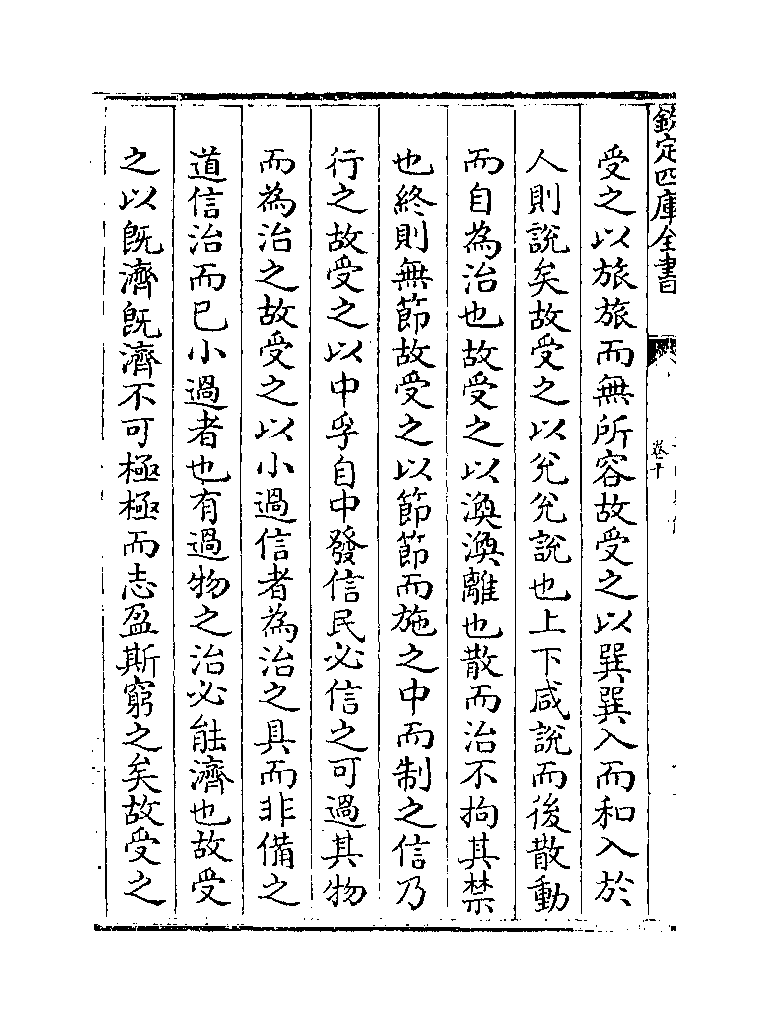 欽定四庫全書
卷十
受之以旅旅而無所容故受之以巽巽入而和入於
人則說矣故受之以兊兊說也上下咸說而後散動
而自為治也故受之以渙渙離也散而治不拘其禁
也終則無節故受之以節節而施之中而制之信乃
行之故受之以中孚自中發信民必信之可過其物
而為治之故受之以小過信者為治之具而非備之
道信治而已小過者也有過物之治必能濟也故受
之以旣濟旣濟不可極極而志盈斯窮之矣故受之